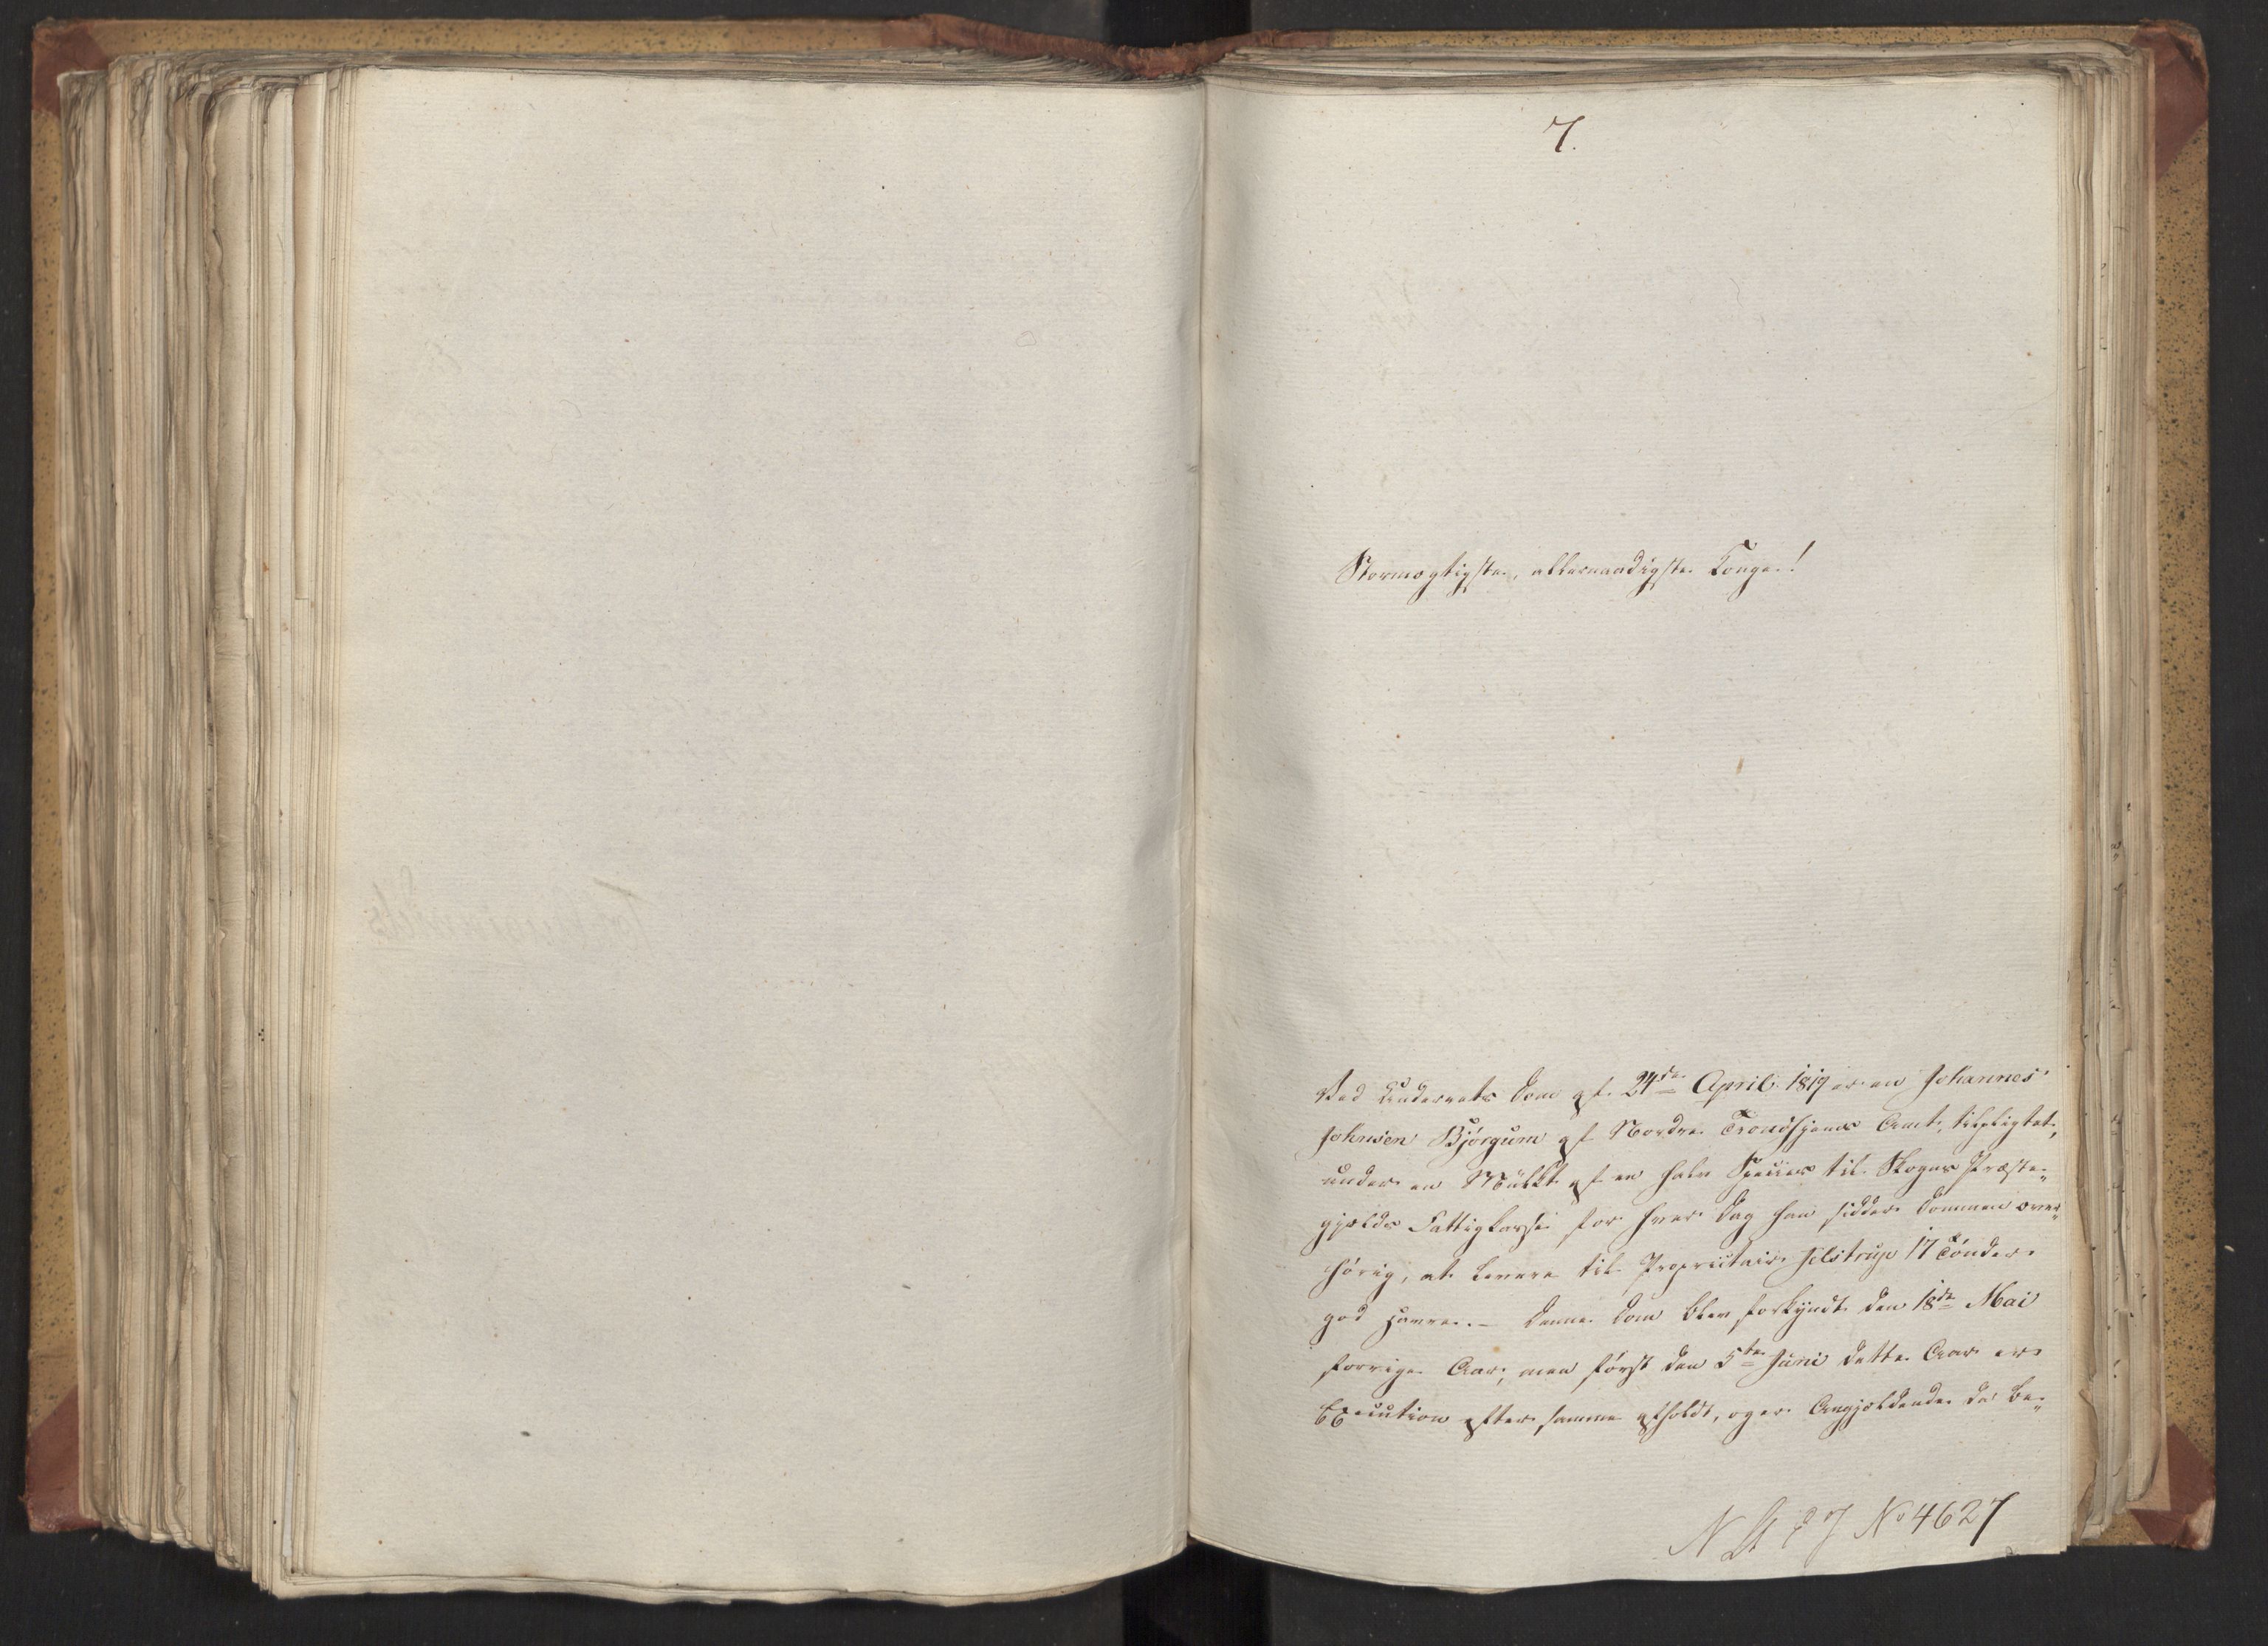 7.
Stormægtigste, allernaadigste Konge!
Ved Underrets Dom af 24de April 1819 er en Johannes
Johnsen Bjórgum af Nordre Trondhjems Amt, tilpligtet,
under en Mülkt af en halv Species til Skogns Præste„
gjælds Fattigkasse for hver Dag han sidder Dommen over„
hórig, at levere til Proprietair Jelstrup 17 Tónder
god Havre. – Denne Dom blev forkyndt den 18de Mai
forrige Aar, men fórst den 5te Juni dette Aar er
Execution efter samme afholdt, og er Angjældende da be„
N St P J No 4627